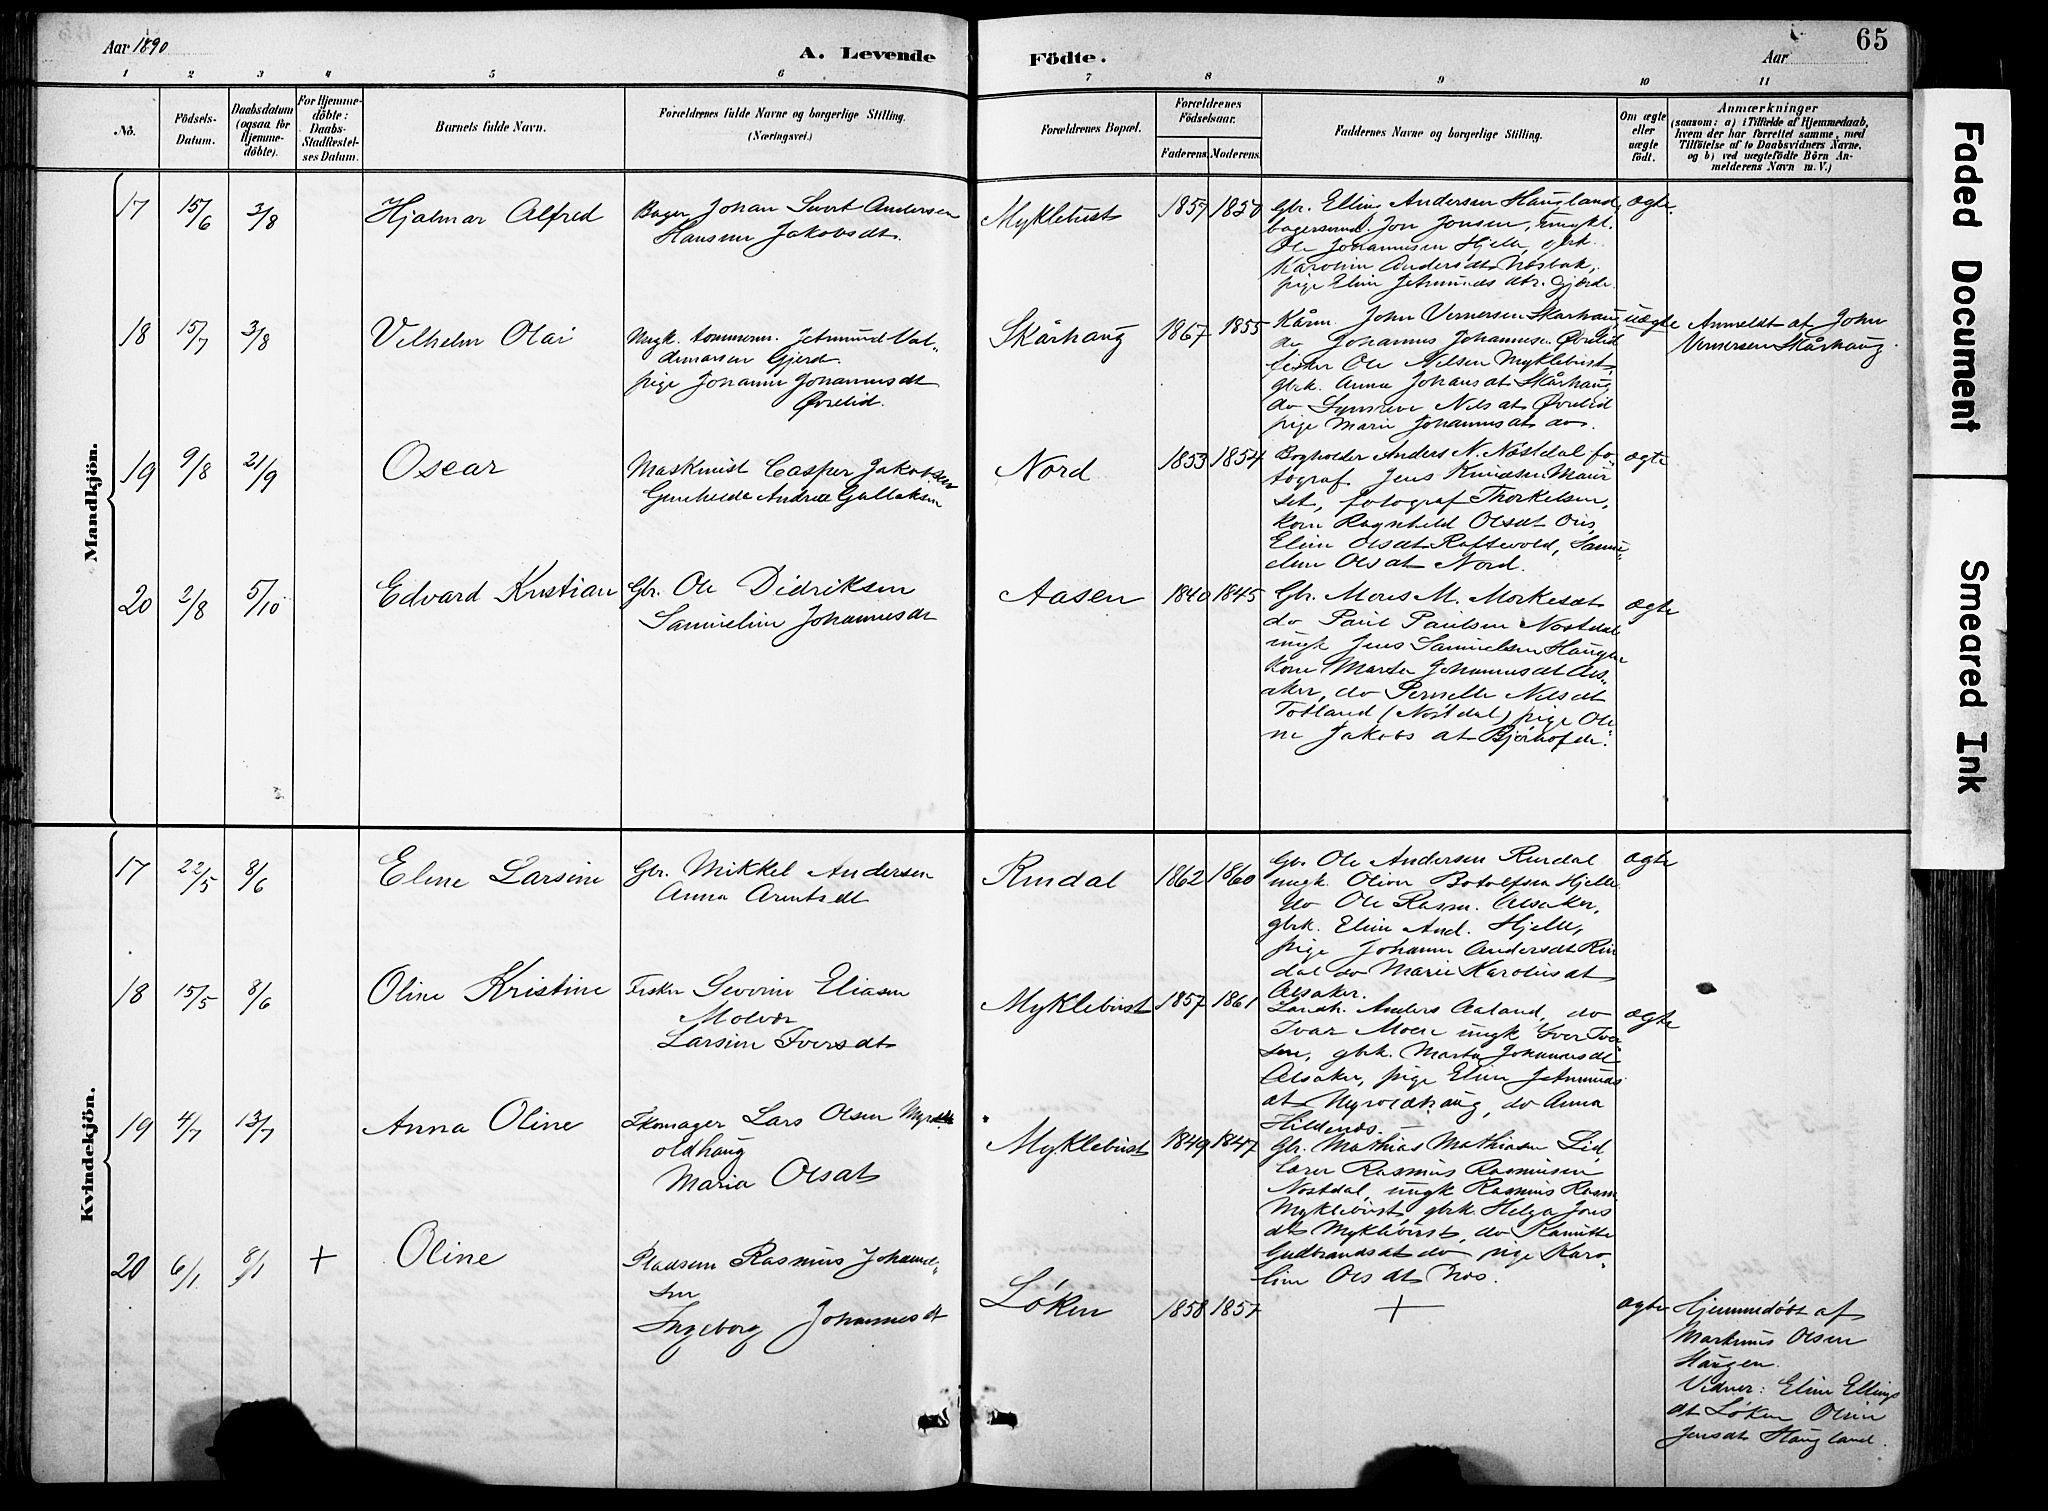 Aar 1890
A. Levende
Födte.
Aar
65
1 2 3 4 5 6 7 8 9 10 11
No.
Födsels-
Datum.
Daabsdatum
(ogsaa for
Hjemme-
döbte).
For Hjemme-
döbte:
Daabs-
Stadfæstel-
ses Datum.
Barnets fulde Navn.
Forældrenes fulde Navne og borgerlige Stilling.
(Næringsvei.)
Forældrenes Bopæl.
Forældrenes
Födselsaar.
Faderens. Moderens.
Faddernes Navne og borgerlige Stilling.
Om ægte
eller
uægte
födt.
Anmærkninger
(saasom: a) i Tilfælde af Hjemmedaab,
hvem der har forrettet samme, med
Tilföielse af to Daabsvidners Navne.
og b) ved uægtefödte Börn An-
melderens Navn m. V.)
Mandkjön.
17 15/6 3/8 Hjalmar Alfred
Bager Johan Andersen
Jakobsdt.
Myklebust 1857 1850
Gbr. Andersen Haugland,
Jon Jonsen, ungk.
Ole Johannesen Hjelle, gbrk.
Andersdt
pige Eline Jetmunds dtr. Gjerde
ægte.
18 15/7 3/8 Vilhelm Olai
Ungk. tømmerm. Jetmund Val-
demarsen Gjerd.
pige Johanne Johannesdt
Øvrelid.
Skårhaug 1867 1855
Kårm. John Vernersen Skårhaug,
do Johannes Johannesen Øvrelid
fisker Ole Nilsen Myklebust,
gbrk. Anna Johansdt Skårhaug,
do Synneve Nilsdt Øvrelid
pige Marie Johannesdt do.
uægte
Anmeldt af John
Vernersen Skårhaug.
19 9/8 21/9 Oscar
Maskinist Casper Jakobsen
Andrea
Nord 1853 1854
Bogholder Anders N. Nøstdal fo-
tograf Jens Knudsen Maur
set, fotograf Thorkelsen,
kone Ragnhild Olsdt
Eline Olsdt Raftevold,
Olsdt Nord.
ægte
20 2/8 5/10 Edvard Kristian
Gbr. Ole Didriksen
Samueline Johannesdt
Aasen 1840 1845
Gbr. Mons M.
do Paul Paulsen Nøstdal
ungk Jens Samuelsen Haugen
kone Marta Johannesdt Als-
aker, do Pernelle Nilsdt
Totland (Nøstdal) pige Oli-
ne Jakobs dt
ægte
Kvindekjön.
17 22/5 8/6 Eline Larsine
Gbr. Mikkel Andersen
Anna Arentsdt
Rindal 1862 1860
Gbr Ole Andersen Rindal
ungk. Oliver Botolfsen Hjelle
do Ole Rasm. Alsaker,
gbrk. Eline And. Hjelle,
pige Johanne Andersdt Rin
dal do Marie Karolusdt
Alsaker.
ægte
18 15/5 8/6 Oline Kristine
Fisker Severin Eliasen
Molvær
Larsine Iversdt
Myklebust 1857 1861
Landh. Anders Aaland, do
Ivar Moen ungk Iver Iver-
sen, gbrk. Marta Johannesdt
Alsaker, pige Eline Jetmunds
dt Myroldhaug, do Anna
Hildenes.
ægte
19 4/7 13/7 Anna Oline
Skomager Lars Olsen Myr-
oldhaug
Maria Olsdt
Myklebust 1849 1847
Gbr. Mathias Mathiasen Lid,
Lærer Rasmus Rasmusen
Nøstdal, ungk Rasmus Rasm
Myklebust, gbrk. Helga Jons
dt Myklebust, do
Gudbrandsdt do pige Karo-
line Ols dt Nos.
20 6/1 8/1 + Oline
Pladsem Rasmus Johannes-
sen
Ingeborg Johannesdt
Løken 1858 1857
+
ægte
Hjemmedøbt af
Markus Olsen
Haugen.
Vidner: Eline Ellings
dt Løken Olsin
Jensdt Haugland.
Faded Document
Smeared Ink